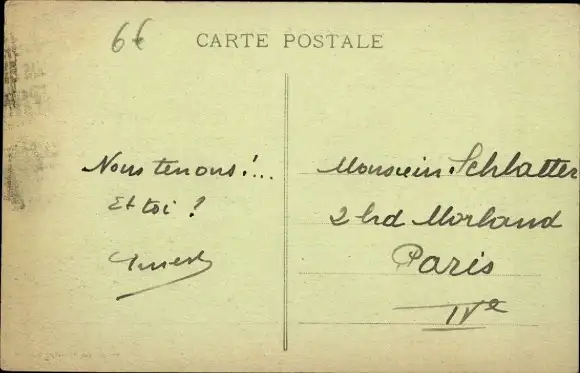 6€
CARTE POSTALE
Nous tenons !...
Et toi ?
Ernest
Monsieur Schlatter
2 bd Morland
Paris
IVe